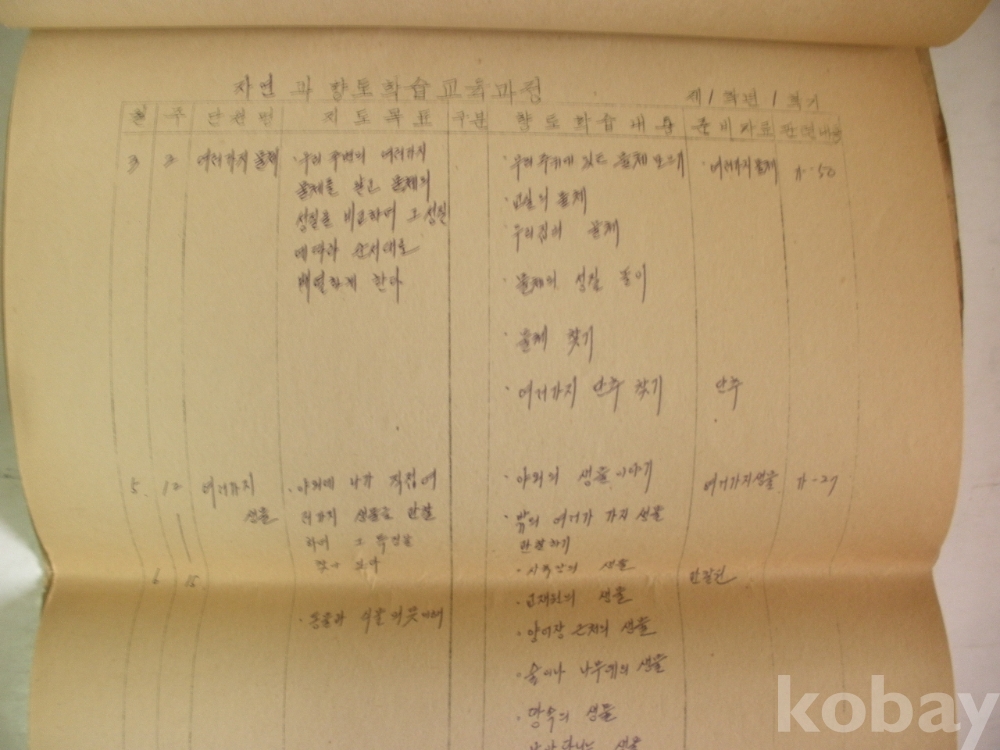 자연 과 향토학습교육과정
제 1 학년 1 학기
월 주 단원명 지도목표 구분 향토학습내용 준비자료 관련내용
3 3 여러가지 물체 ·우리 주변의 여러가지 ·우리 주위에 있는 물체 ·여러가지 물체 11-50
물체를 알고 물체의 ·교실의 물체
성질을 비교하여 그 성질 ·우리집의 물체
에따라 순서대로
배열하게 한다 ·물체의 성질
·물체 찾기
·여러가지 단추 찾기 단추
5. 12 여러가지 ·야외에 나가 직접 여 ·야외의 생물 이야기 여러가지 생물 11-27
생물 러가지 생물을 관찰 ·밖의 여러가 가지 생물
하여 그 특징을 관찰하기
6 15 ·생물
·교재원의 생물 관찰
·동물과 식물 ·양어장 근처의 생물
·숲이나 나무에의 생물
·땅속의 생물
생물
kobay